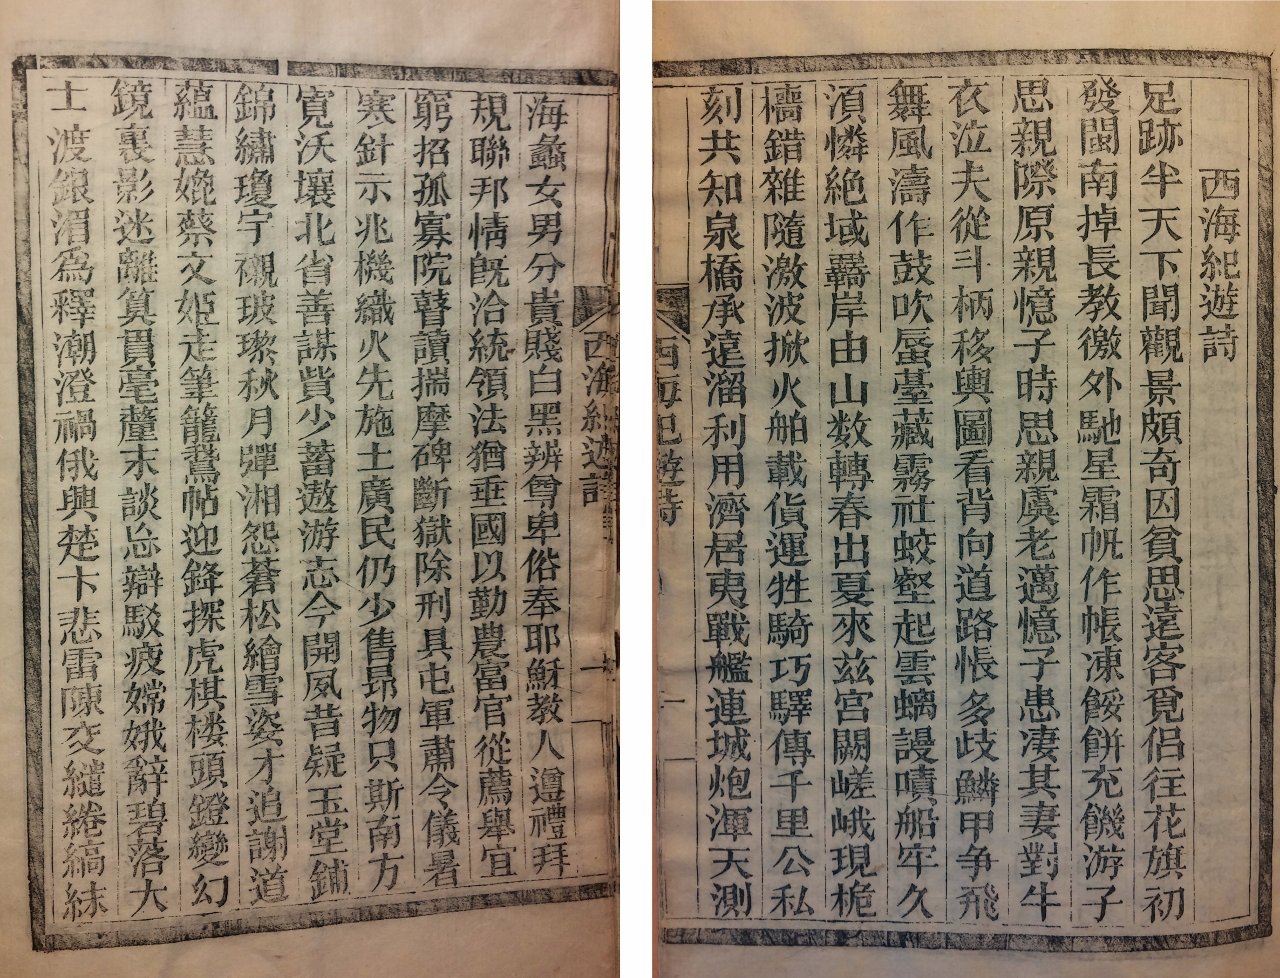 西海紀遊詩
足跡半天下聞觀景頗奇因貧思遠客覓侶往花旗初
發閩南掉長教徼外馳星霜帆作帳凍餒餅充饑游子
思親際原親憶子時思親虞老邁憶子患凄其妻對牛
衣泣夫從斗柄移輿圖看背向道路悵多歧鱗甲争飛
舞風濤作鼓吹蜃臺藏霧社蛟壑起雲螭謾嘖船牢久
湏憐絶域羈岸由山数轉春出夏來兹宮闕嵯峨現桅
檣錯雜隨激波掀火舶載貨運牲騎巧驛傳千里公私
刻共知泉橋承遠溜利用濟居夷戰艦連城炮渾天測
西海紀遊詩
一
西海紀遊詩
一
海蠡女男分貴賤白黑辨尊卑俗奉耶穌教人遵禮拜
規聯邦情旣洽統領法猶垂國以勤農富官從薦舉宜
窮招孤寡院瞽讀揣摩碑斷獄除刑具屯軍肅令儀暑
寒針示兆機織火先施土廣民仍少售昻物只斯南方
寛沃壤北省善謀貲少蓄遨游志今開夙昔疑玉堂鋪
錦繡瓊宇襯玻瓈秋月彈湘怨蒼松繪雪姿才追謝道
蘊慧媲蔡文姬走筆籠鵞帖迎鋒探虎棋楼頭鐙變幻
鏡裏影迷離算貫毫釐末談忩辯駁疲嫦娥辭碧落大
士渡銀湄為釋潮澄禍俄興楚卞悲雷陳交繾綣縞